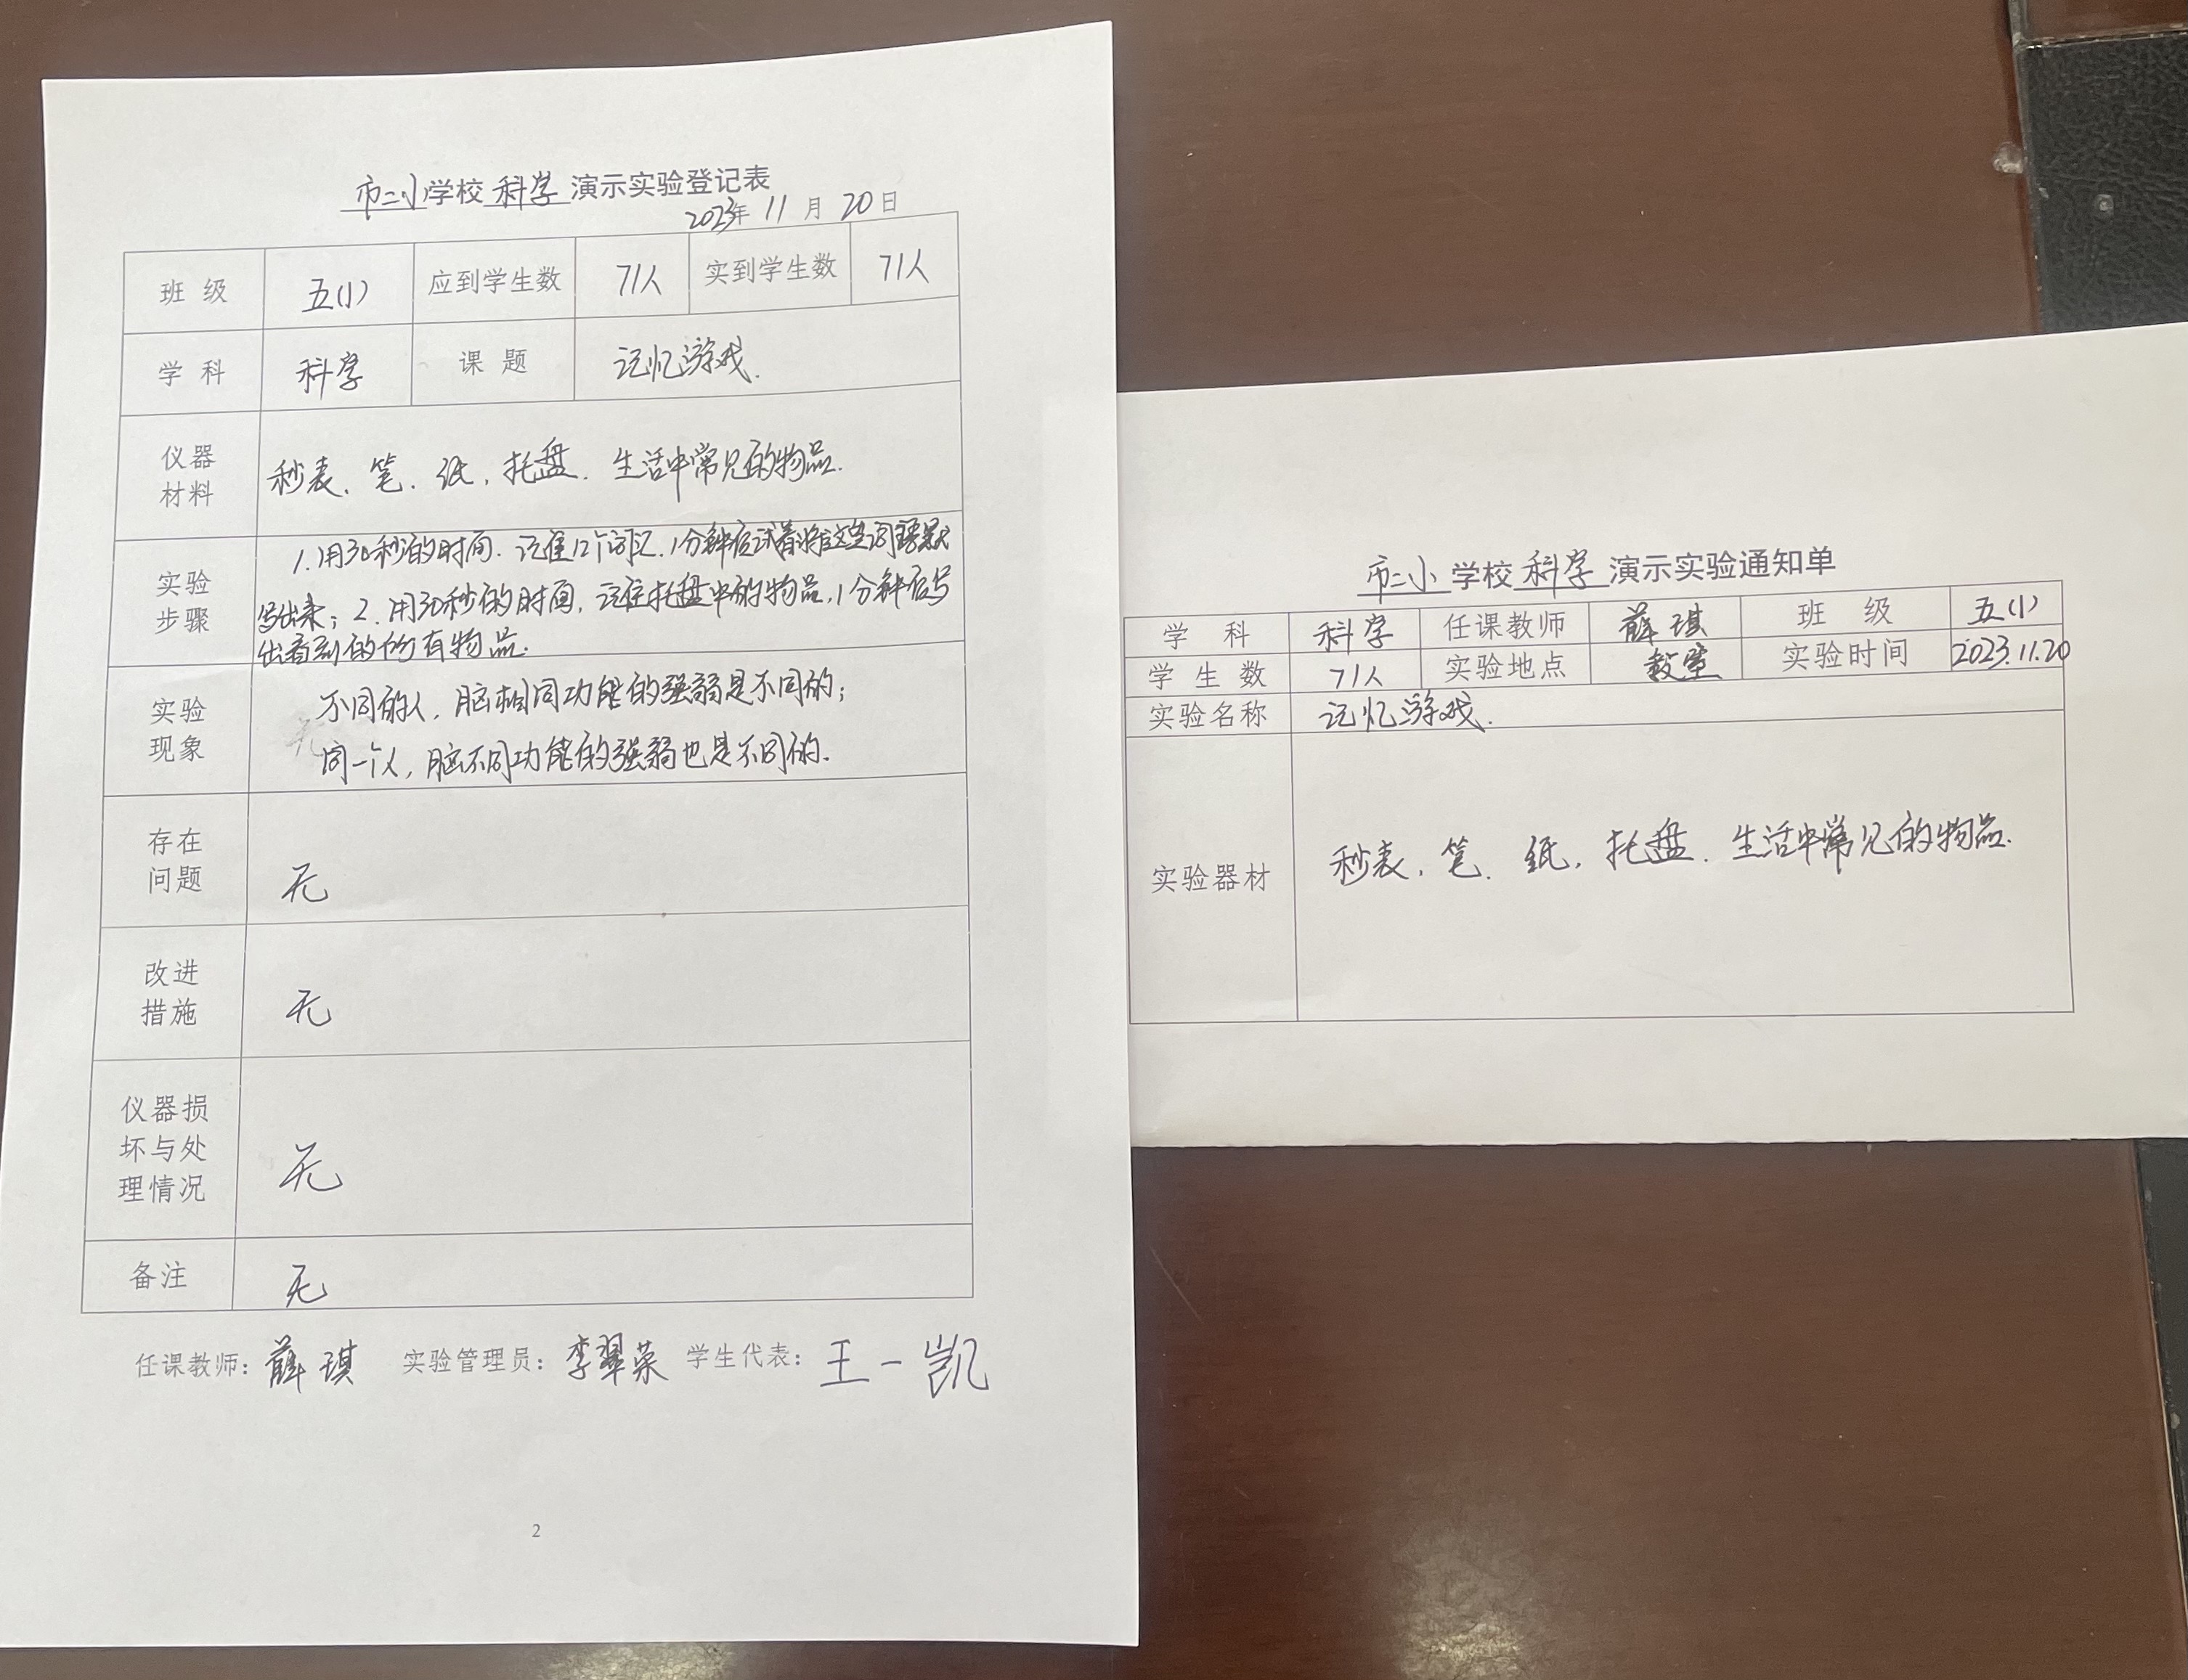 市二小学校 科学 演示实验登记表
2023年 11 月 20 日
班 级 五(1) 应到学生数 71人 实到学生数 71人
学 科 科学 课 题 记忆游戏.
仪器
材料
秒表、笔、纸、托盘、生活中常见的物品.
实验
步骤
1.用30秒的时间.记住12个词汇.1分钟后试着将这些词语默
写出来;2.用30秒的时间,记住托盘中的物品,1分钟后写
出看到的所有物品.
实验
现象
不同的人,脑相同功能的强弱是不同的;
同一个人,脑不同功能的强弱也是不同的.
存在
问题
无
改进
措施
无
仪器损
坏与处
理情况
无
备注 无
任课教师: 薛琪 实验管理员: 李翠荣 学生代表: 王一凯
2
市二小 学校 科学 演示实验通知单
学 科 科学 任课教师 薛琪 班 级 五(1)
学 生 数 71人 实验地点 教室 实验时间 2023.11.20
实验名称 记忆游戏.
实验器材 秒表、笔、纸、托盘、生活中常见的物品.